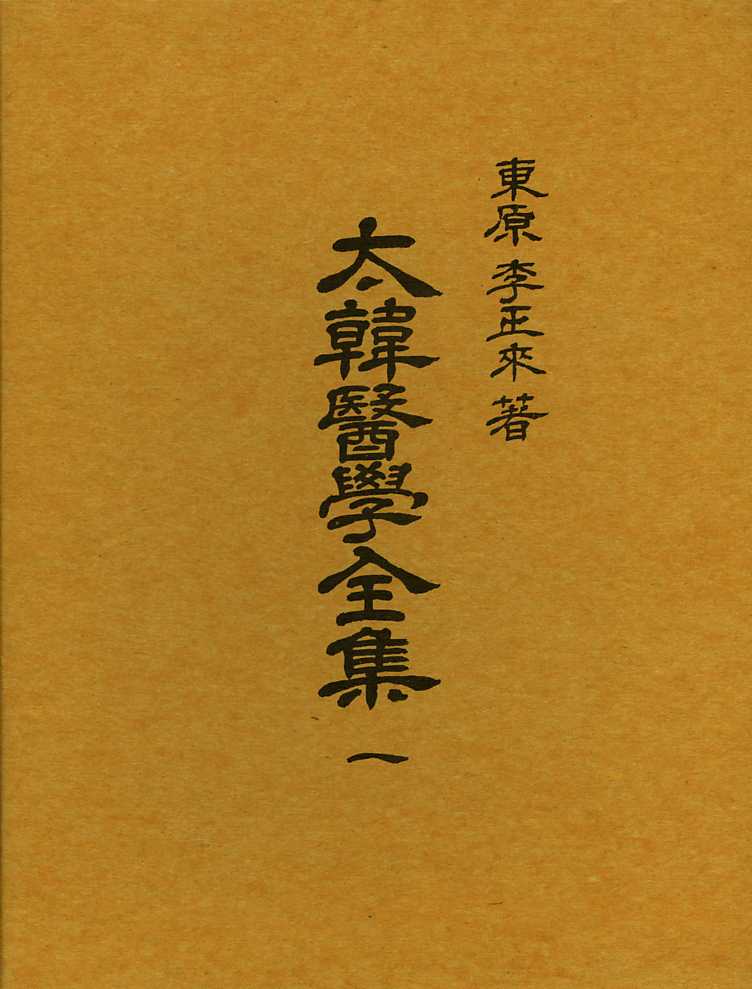 東原 李正來 著
太韓醫學全集 一